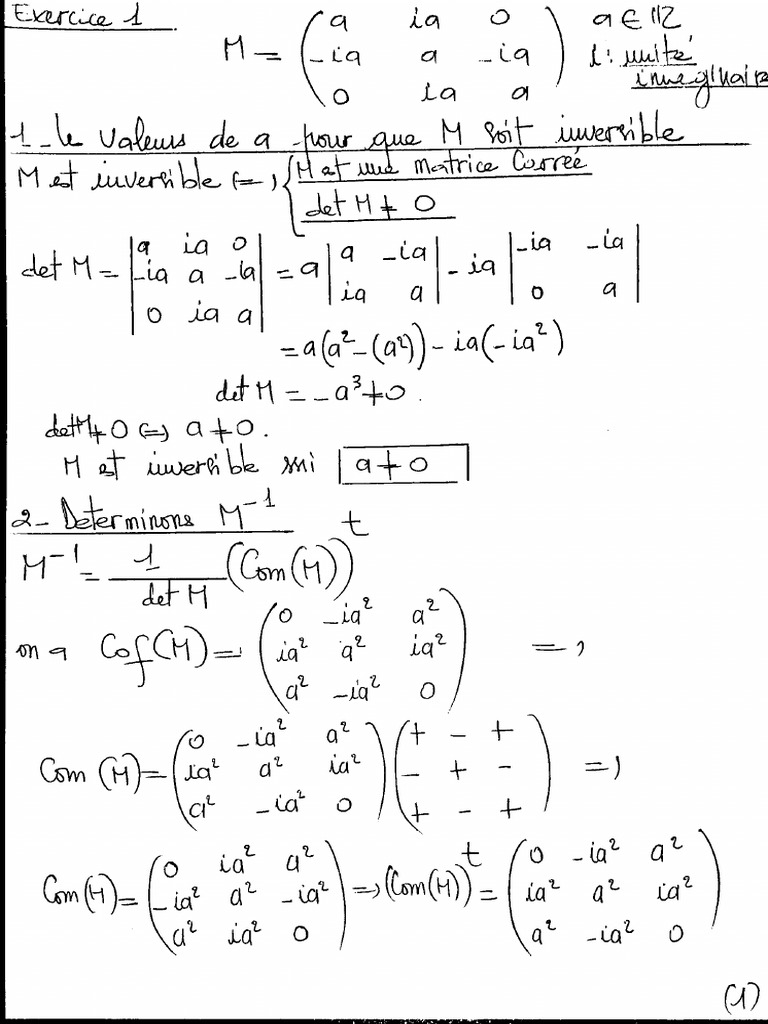 Exercice 1
M = ( a ia 0 ) a ∈ IR
( -ia a -ia ) i : unité
( 0 ia a ) imaginaire
1 - le valeurs de a pour que M soit inversible
M est inversible <=> { M est une matrice Carrée
det M ≠ 0
det M = | a ia 0 | = a | a -ia | - ia | -ia -ia |
| -ia a -ia | | ia a | | 0 a |
| 0 ia a |
= a(a² - (a²)) - ia(-ia²)
det M = -a³ ≠ 0.
det M ≠ 0 <=> a ≠ 0.
M est inversible ssi a ≠ 0
2 - Determinons M⁻¹
M⁻¹ = 1 / det M (Com(M))ᵗ
on a Cof(M) = ( 0 -ia² a² ) =>
( ia² a² ia² )
( a² -ia² 0 )
Com (M) = ( 0 -ia² a² ) ( + - + ) =>
( ia² a² ia² ) ( - + - )
( a² -ia² 0 ) ( + - + )
Com(M) = ( 0 ia² a² ) => (Com(M))ᵗ = ( 0 -ia² a² )
( -ia² a² -ia² ) ( ia² a² ia² )
( a² ia² 0 ) ( a² -ia² 0 )
(1)